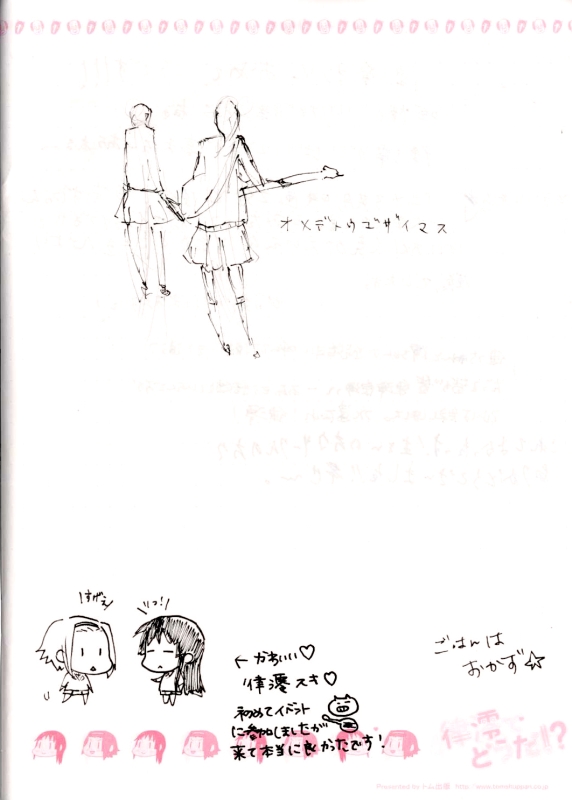 オメデトウゴザイマス
すげぇ
← かわいい♡
律澪スキ♡
初めてイベント
に参加しましたが
来て本当に良かったです!
ごはんは
おかず☆
律澪で
どうだ!?
Presented by トム出版